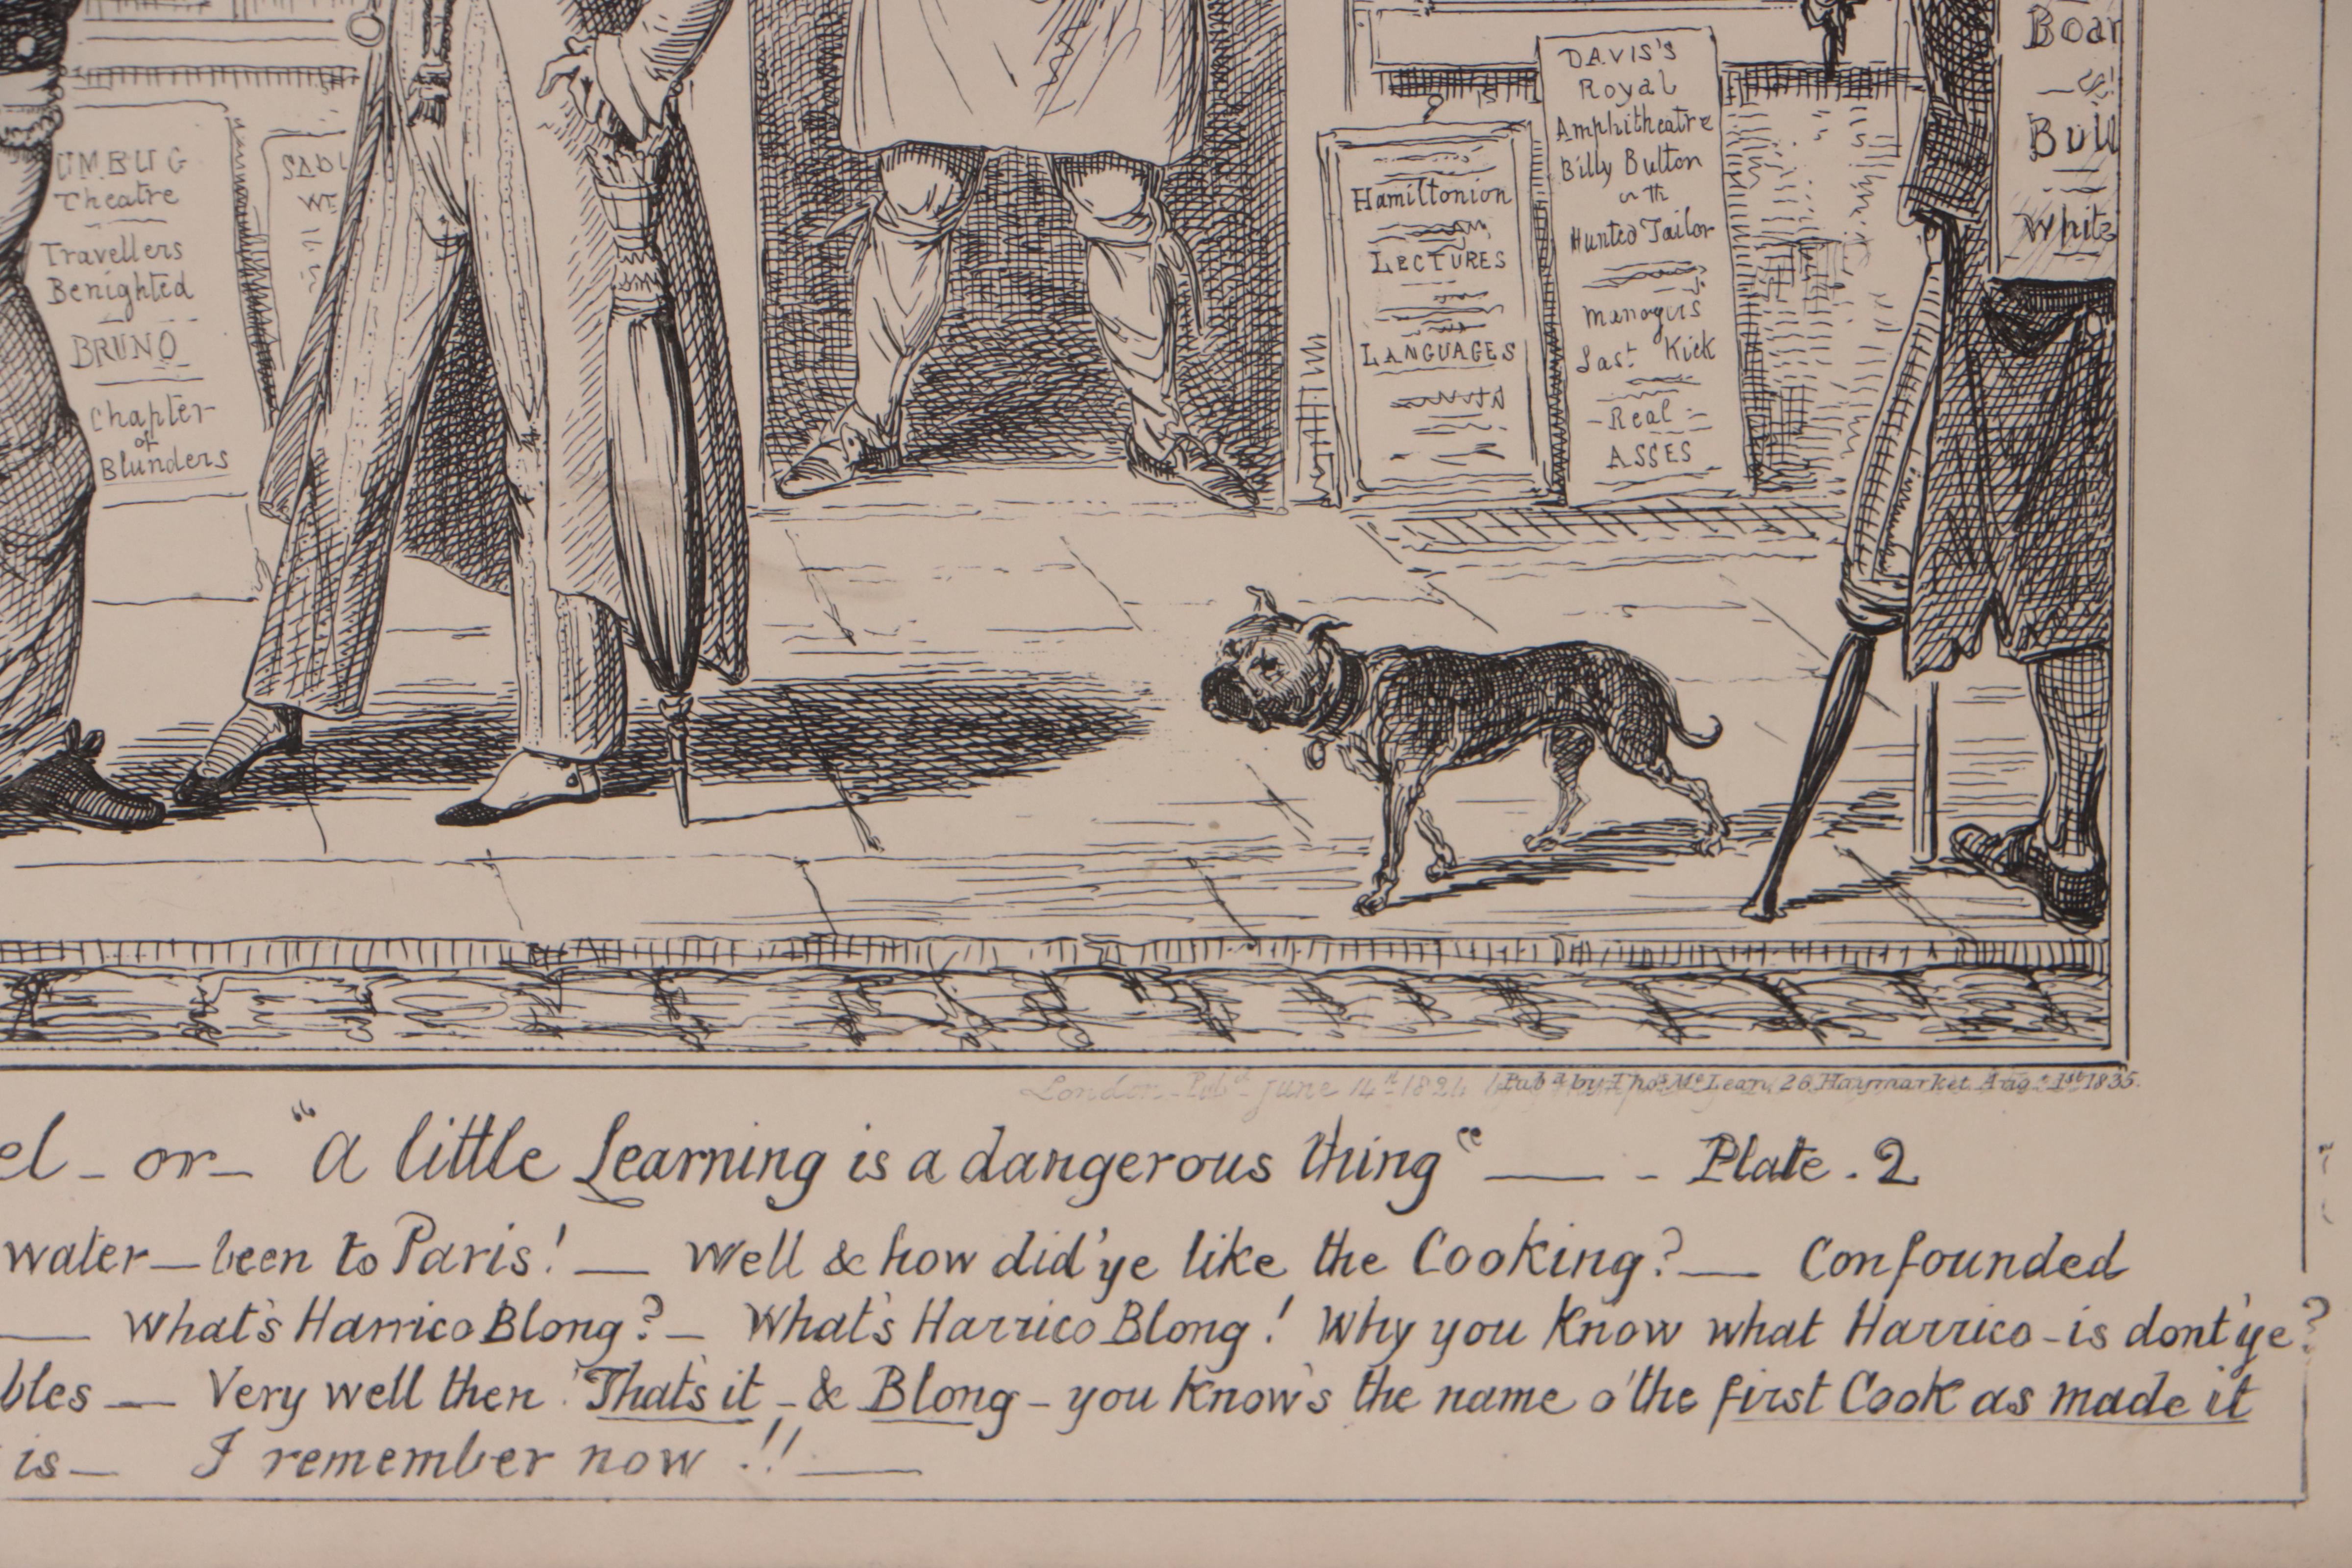 UMBUG
Theatre
Travellers
Benighted
BRUNO
Chapter
of
Blunders
SADL
WE
Hamiltonion
LECTURES
LANGUAGES
DAVIS'S
Royal
Amphitheatre
Billy Button
or the
Hunted Tailor
Managers
Last Kick
Real
ASSES
Boar
&
Bull
White
London - Pubd June 14th 1824 by
Pubd by Thos McLean, 26 Haymarket Augt 1st 1835.
el - or - "A little Learning is a dangerous thing" — - Plate . 2
water — been to Paris! — Well & how did'ye like the Cooking? — Confounded
— What's Harrico Blong? — What's Harrico Blong! Why you Know what Harrico - is dont'ye?
bles — Very well then That's it - & Blong - you Know's the name o' the first Cook as made it
is — I remember now !! —